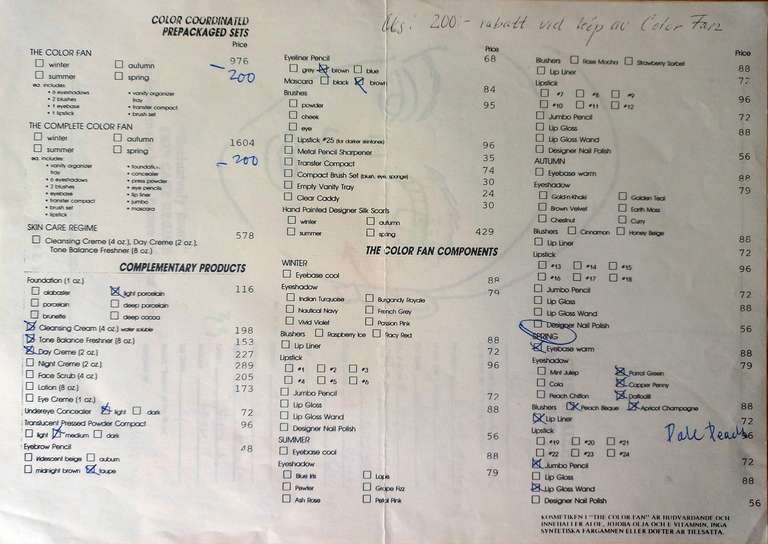 Obs! 200:- rabatt vid köp av Color Fan
COLOR COORDINATED
PREPACKAGED SETS
Price
THE COLOR FAN 976
winter autumn -200
summer spring
ea. includes:
• 6 eyeshadows • vanity organizer
• 2 blushes tray
• 1 eyebase • transfer compact
• 1 lipstick • brush set
THE COMPLETE COLOR FAN
winter autumn 1604
summer spring -200
ea. includes:
• vanity organizer • foundation
tray • concealer
• 6 eyeshadows • press powder
• 2 blushes • eye pencils
• eyebase • lip liner
• transfer compact • jumbo
• brush set • mascara
• lipstick
SKIN CARE REGIME
Cleansing Creme (4 oz.), Day Creme (2 oz.), 578
Tone Balance Freshner (8 oz.)
COMPLEMENTARY PRODUCTS
Foundation (1 oz.)
alabaster light porcelain 116
porcelain deep porcelain
brunette deep cocoa
Cleansing Cream (4 oz.) water soluble 198
Tone Balance Freshner (8 oz.) 153
Day Creme (2 oz.) 227
Night Creme (2 oz.) 289
Face Scrub (4 oz.) 205
Lotion (8 oz.) 173
Eye Creme (1 oz.)
Undereye Concealer light dark 72
Translucent Pressed Powder Compact 96
light medium dark
Eyebrow Pencil 48
iridescent beige auburn
midnight brown taupe
Price
Eyeliner Pencil 68
grey brown blue
Mascara black brown 84
Brushes
powder 95
cheek
eye
Lipstick #25 (for darker skintones) 96
Metal Pencil Sharpener 35
Transfer Compact 74
Compact Brush Set (blush, eye, sponge) 30
Empty Vanity Tray 24
Clear Caddy 30
Hand Painted Designer Silk Scarfs
winter autumn
summer spring 429
THE COLOR FAN COMPONENTS
WINTER
Eyebase cool 88
Eyeshadow 79
Indian Turquoise Burgandy Royale
Nautical Navy French Grey
Vivid Violet Passion Pink
Blushers Raspberry Ice Racy Red 88
Lip Liner 72
Lipstick 96
#1 #2 #3
#4 #5 #6
Jumbo Pencil 72
Lip Gloss
Lip Gloss Wand 88
Designer Nail Polish
SUMMER 56
Eyebase cool 88
Eyeshadow
Blue Iris Lapis 79
Pewter Grape Fizz
Ash Rose Petal Pink
Price
Blushers Rose Mocha Strawberry Sorbet 88
Lip Liner 72
Lipstick
#7 #8 #9 96
#10 #11 #12
Jumbo Pencil 72
Lip Gloss
Lip Gloss Wand 88
Designer Nail Polish
AUTUMN 56
Eyebase warm 88
Eyeshadow 79
Gold-n Khaki Golden Teal
Brown Velvet Earth Moss
Chestnut Curry
Blushers Cinnamon Honey Beige 88
Lip Liner
Lipstick 72
#13 #14 #15 96
#16 #17 #18
Jumbo Pencil 72
Lip Gloss
Lip Gloss Wand 88
Designer Nail Polish 56
SPRING
Eyebase warm 88
Eyeshadow 79
Mint Julep Parrot Green
Cola Copper Penny
Peach Chiffon Daffodil
Blushers Peach Bisque Apricot Champagne 88
Lip Liner 72
Lipstick Pale Peach 96
#19 #20 #21
#22 #23 #24
Jumbo Pencil 72
Lip Gloss
Lip Gloss Wand 88
Designer Nail Polish 56
KOSMETIKEN I "THE COLOR FAN" ÄR HUDVÅRDANDE OCH
INNEHÅLLER ALOE, JOJOBA OLJA OCH E VITAMIN. INGA
SYNTETISKA FÄRGÄMNEN ELLER DOFTER ÄR TILLSATTA.